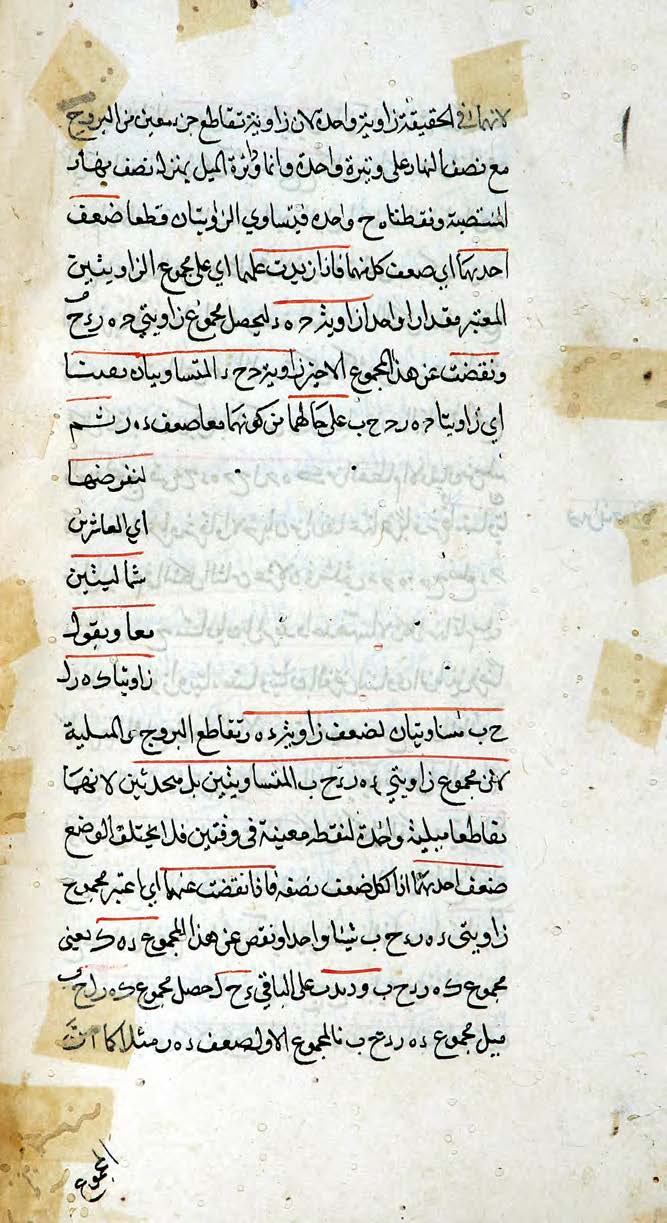 لانهما في الحقيقة زاوية واحدة لان زاوية تقاطع جزء معين من البروج
مع نصف النهار على وتيرة واحدة وانما دائرة الميل بمنزلة نصف نهار
المنتصبة ونقطتا ه ح واحده فيتساوي الزاويتان قطعا ضعف
احديهما اي ضعف كل منهما فاذا زيدت عليهما اي على مجموع الزاويتين
المعتبر مقدارا واحدا زاوية ح ه ء ليحصل مجموع زاويتي ح ه ر ء ح ب
ونقصت عن هذا المجموع الاخير زاوية ح ء المتساويتان بقيتا
اي زاويتا ح ه ر ح ب على حالهما من كونهما معا ضعف ء ه ر ثم
لنفرضهما
اي العاشرين
شماليتين
معا ونقول
زاويتا ك ه ر ل
ح ب متساويتان لضعف زاوية ء ه ر تقاطع البروج والميلية
لان مجموع زاويتي ء ه ر ء ح ب المتساويتين بل متحدتين لانهما
تقاطعا ميلية واحدة لنقطة معينة في وقتين فلا يختلف الوضع
ضعف احديهما اذ الكل ضعف نصفه فاذا نقصت عنهما اي اعتبر مجموع
زاويتي ء ه ر ء ح ب شيئا واحدا ونقص عن هذا المجموع ء ه ك يعني
مجموع ك ه ر ء ح ب وزيدت على الباقي ء ح ل حصل مجموع ك ه ر ل ح ب
مثل مجموع ء ه ر ء ح ب فالمجموع الاول ضعف ء ه ر مثلا كما ان
المجموع